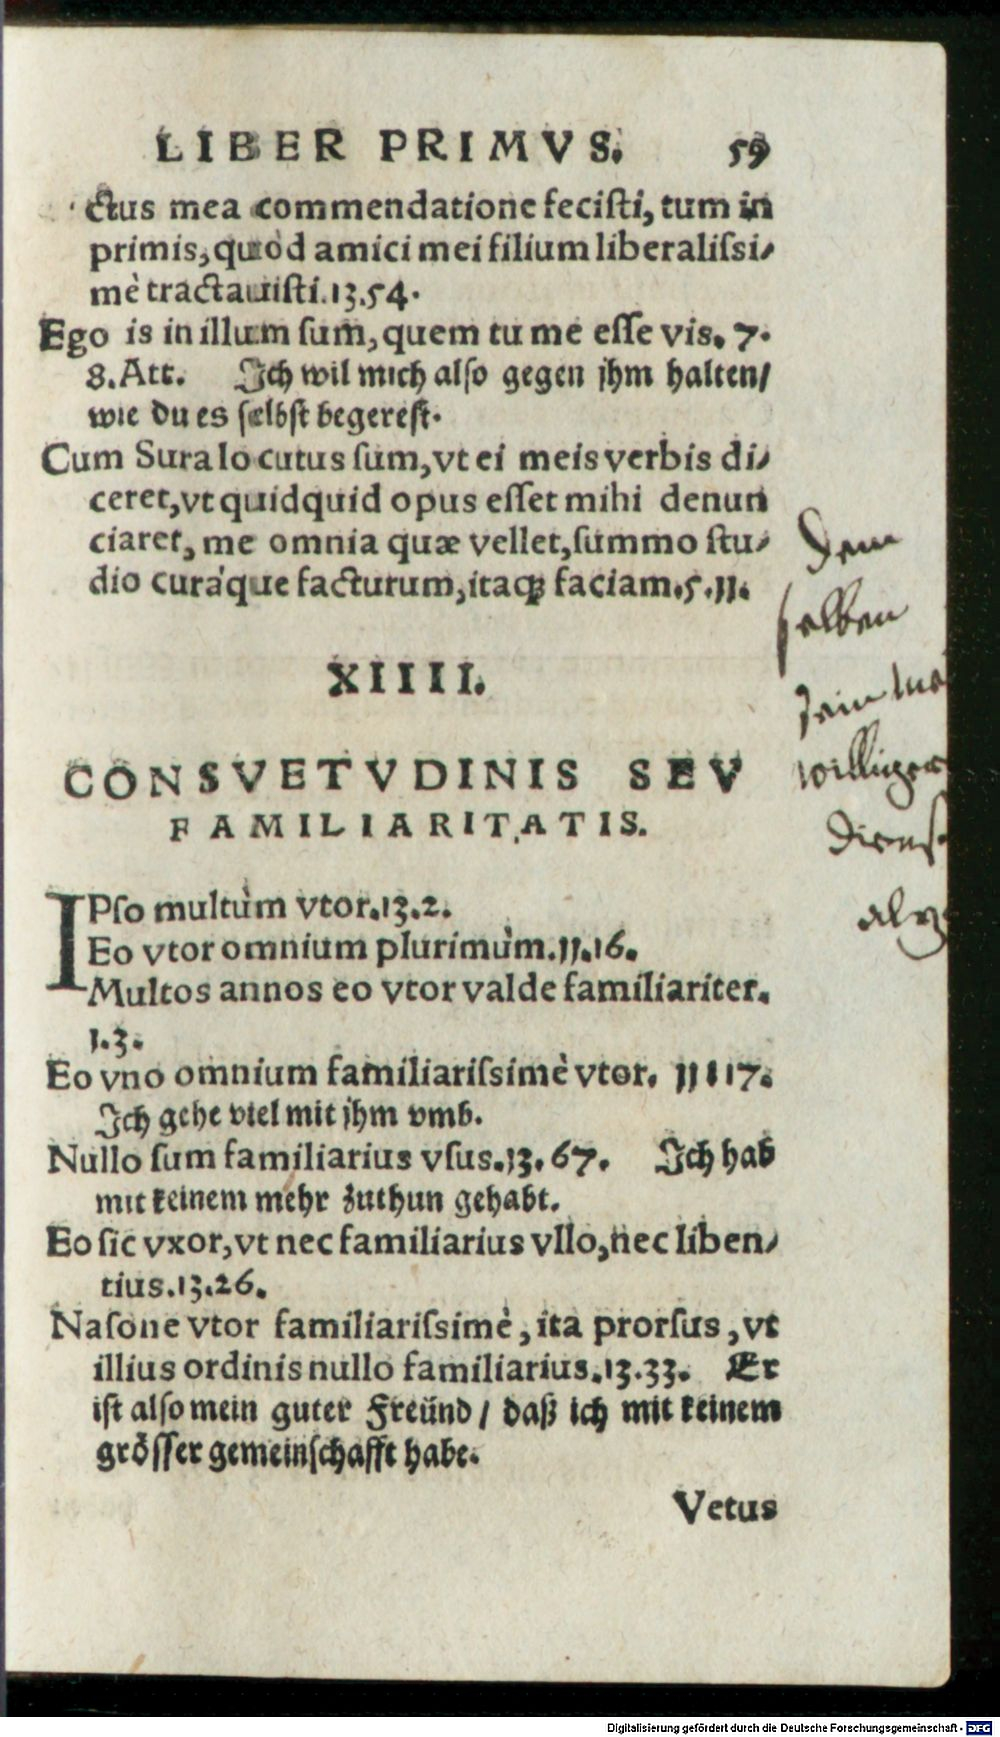 LIBER PRIMVS. 59
ctus mea commendatione fecisti, tum in
primis, quòd amici mei filium liberalissi-
mè tractauisti. 13. 54.
Ego is in illum sum, quem tu me esse vis. 7.
8. Att. Ich wil mich also gegen jhm halten/
wie du es selbst begerest.
Cum Sura locutus sum, vt ei meis verbis di-
ceret, vt quidquid opus esset mihi denun
ciaret, me omnia quæ vellet, summo stu-
dio curáque facturum, itaq; faciam. 5. 11.
Dem
selben
sein
williger
Dienst
XIIII.
CONSVETVDINIS SEV
FAMILIARITATIS.
IPso multùm vtor. 13. 2.
Eo vtor omnium plurimùm. 11. 16.
Multos annos eo vtor valde familiariter.
1. 3.
Eo vno omnium familiarissimè vtor. 11 1 17.
Ich gehe viel mit jhm vmb.
Nullo sum familiarius vsus. 13. 67. Ich hab
mit keinem mehr zuthun gehabt.
Eo sic vxor, vt nec familiarius vllo, nec liben-
tius. 13. 26.
Nasone vtor familiarissimè, ita prorsus, vt
illius ordinis nullo familiarius. 13. 33. Er
ist also mein guter Freünd/ daß ich mit keinem
grösser gemeinschafft habe.
Vetus
Digitalisierung gefördert durch die Deutsche Forschungsgemeinschaft - DFG